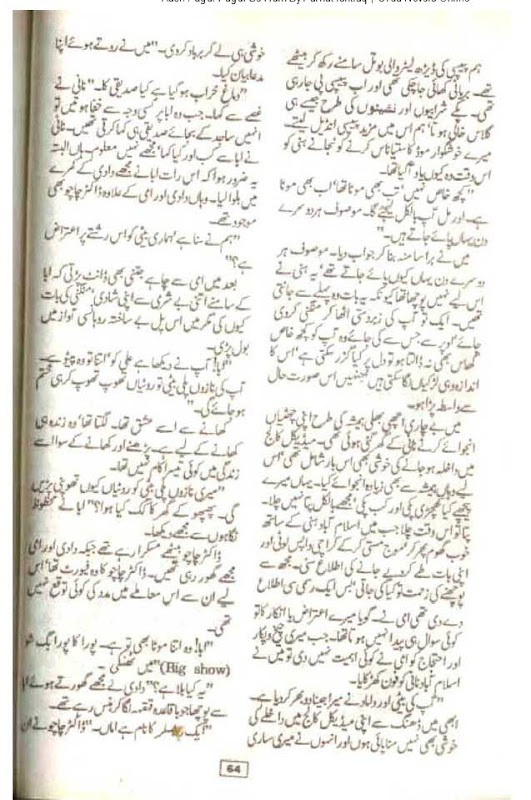 ہم پیپسی کی ڈیڑھ لیٹر والی بوتل سامنے رکھ کر بیٹھے
تھے۔ بریانی کھائی جا چکی تھی اور اب پیپسی پی جا رہی
تھی۔ پکے شرابیوں اور نشئیوں کی طرح جیسے ہی
گلاس خالی ہوتا، ہم اس میں مزید پیپسی انڈیل لیتے۔
میرے خوشگوار موڈ کا ستیاناس کرنے کو نجانے ہنی کو
اس وقت وہ کیوں یاد آ گیا تھا۔
"کچھ خاص نہیں" تب بھی موٹا تھا، اب بھی موٹا
ہے۔ اور مل آپ بالکل لیجئے گا۔ موصوف ہر دوسرے
دن یہاں پائے جاتے ہیں۔"
میں نے برا سا منہ بنا کر جواب دیا۔ موصوف ہر
دوسرے دن یہاں کیوں پائے جاتے تھے، یہ ہنی نے
اس لیے نہیں پوچھا تھا کیونکہ یہ بات وہ پہلے سے جانتی
تھیں۔ ایک تو آپ کی زبردستی اٹھا کر منگنی کر دی
جائے اوپر سے جس سے کی جائے وہ آپ کو کچھ خاص
گھاس بھی نہ ڈالتا ہو تو دل پر کیا گزر سکتی ہے، اس کا
اندازہ وہی لڑکیاں لگا سکتی ہیں جنہیں اس صورت حال
سے واسطہ پڑا ہو۔
میں بے چاری اچھی بھلی ہمیشہ کی طرح اپنی چھٹیاں
انجوائے کرنے ہنی کے گھر گئی ہوئی تھی۔ میڈیکل کالج
میں داخلہ ہو جانے کی خوشی بھی اس بار شامل تھی، اس
لیے وہاں ہمیشہ سے بھی زیادہ انجوائے کیا۔ یہاں میرے
پیچھے کیا کھچڑی پکی اور کب پکی، مجھے بالکل پتا نہیں چلا۔
پتا تو اس وقت چلا جب میں اسلام آباد ہنی کے ساتھ
خوب گھوم پھر کر موج مستی کر کے کراچی واپس لوٹی اور
اپنی بات طے کر دیے جانے کی اطلاع سنی۔ مجھ سے
پوچھنے کی زحمت تو کیا کی جاتی، بس ایک رسمی سی اطلاع
دے دی تھی امی نے۔ گویا میرے اعتراض یا انکار کا تو
کوئی سوال ہی پیدا نہیں ہوتا تھا۔ جب میری چیخ و پکار
اور احتجاج کو امی نے کوئی اہمیت نہیں دی تو میں نے
اسلام آباد نانی کو فون کھڑکایا۔
"آپ کی بیٹی اور داماد نے میرا جینا دوبھر کر دیا ہے۔
ابھی میں ڈھنگ سے اپنی میڈیکل کالج میں داخلے کی
خوشی بھی نہیں منا پائی ہوں اور انہوں نے میری ساری
خوشی ہی لے کر برباد کر دی۔" میں نے روتے ہوئے اپنا
مدعا بیان کیا۔
"دماغ خراب ہو گیا ہے کیا صدیقی کا۔" نانی نے
غصے سے کہا۔ جب وہ ابا پر کسی وجہ سے خفا ہوتیں تو
انہیں ساجد کے بجائے صدیقی ہی کہا کرتی تھیں۔ نانی
نے ابا سے کب اور کیا کہا، مجھے نہیں معلوم۔ ہاں البتہ
یہ ضرور ہوا کہ اس رات ابا نے مجھے دادی کے کمرے
میں بلوا لیا۔ وہاں دادی اور امی کے علاوہ ڈاکٹر چاچو بھی
موجود تھے۔
"ہم نے سنا ہے، ہماری بیٹی کو اس رشتے پر اعتراض
ہے؟"
بعد میں امی سے چاہے جتنی بھی ڈانٹ پڑتی کہ ابا
کے سامنے اتنی بے شرمی سے اپنی شادی، منگنی کی بات
کیوں کی مگر میں اس پل بے ساختہ روہانسی آواز میں
بول پڑی۔
"ابا! آپ نے دیکھا ہے علی کو، اتنا تو وہ پیٹو ہے۔
آپ کی نازوں پلی بیٹی تو روٹیاں تھوپ تھوپ کر ہی ختم
ہو جائے گی۔"
کھانے سے اسے عشق تھا۔ لگتا تھا، وہ زندہ ہی
کھانے کے لیے ہے۔ پڑھنے اور کھانے کے سوا اسے
زندگی میں کوئی تیسرا کام نہیں تھا۔
"میری نازوں پلی بیٹی کو روٹیاں کیوں تھوپنی پڑیں
گی۔ پھپھو کے گھر کا کک کیا ہوا؟" ابا نے محظوظ
نگاہوں سے مجھے دیکھا۔
ڈاکٹر چاچو بیٹھے مسکرا رہے تھے جبکہ دادی اور امی
مجھے گھور رہی تھیں۔ ڈاکٹر چاچو کا وہ فیورٹ تھا، اس
لیے ان سے اس معاملے میں مدد کی کوئی توقع نہیں
تھی۔
"ابا! وہ اتنا موٹا بھی تو ہے۔ پورا کا پورا بگ شو
(Big show)" میں
"یہ کیا بلا ہے؟" دادی نے مجھے گھورتے ہوئے ابا
سے پوچھا جو باقاعدہ قہقہہ لگا کر ہنس رہے تھے۔
"ایک ریسلر کا نام ہے اماں۔" ڈاکٹر چاچو نے ان
64